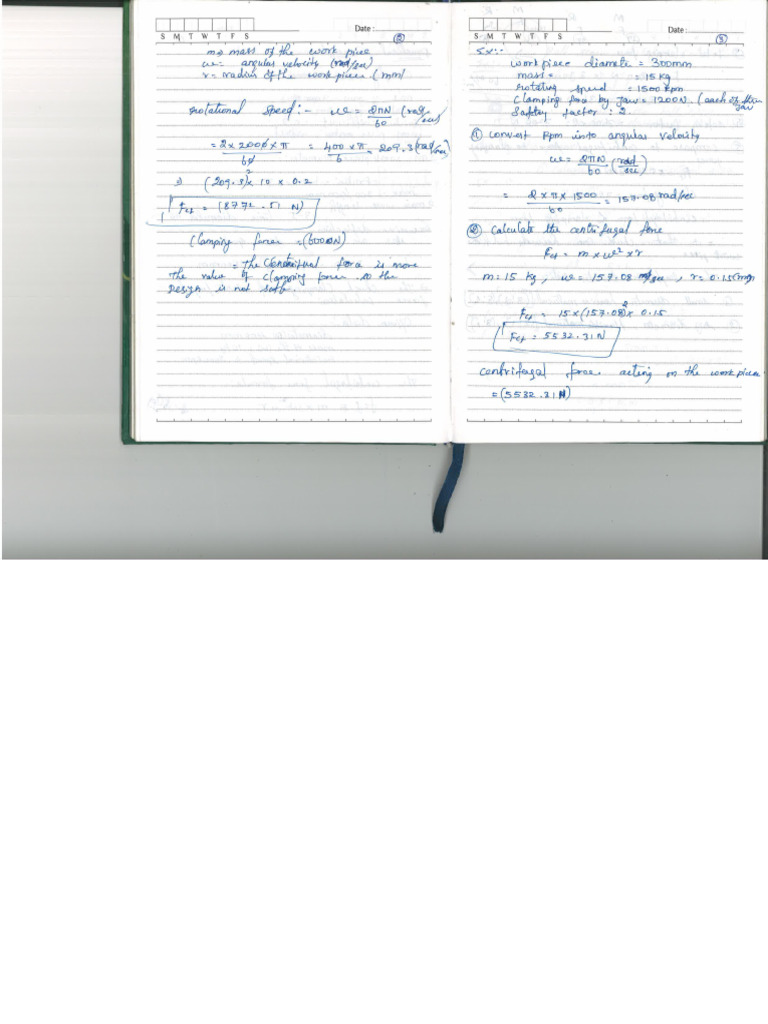 Date :
S M T W T F S
2
m => mass of the work piece
ω = angular velocity (rad/sec)
r = radius of the work piece (mm)
rotational speed :- ω = 2πN/60 (rad/sec)
= 2 x 2000 x π / 60 = 400 x π / 6 = 209.3 (rad/sec)
=> (209.3)² x 10 x 0.2
Fcf = (8772.51 N)
Clamping force = (6000N)
= the Centrifugal force is more
the value of clamping force so the
design is not safe.
Date :
S M T W T F S
3
Ex:-
work piece diameter = 300mm
mass = = 15 Kg
rotating speed = 1500 rpm
Clamping force by Jaw = 1200N (each of three jaw
Safety factor : 2
① convert rpm into angular velocity
ω = 2πN/60 (rad/sec)
= 2 x π x 1500 / 60 = 157.08 rad/sec
② Calculate the centrifugal force
Fcf = m x ω² x r
m = 15 kg, ω = 157.08 rad/sec, r = 0.15(m)
Fcf = 15 x (157.08)² x 0.15
Fcf = 5532.31 N
Centrifugal force acting on the work piece
= (5532.31 N)